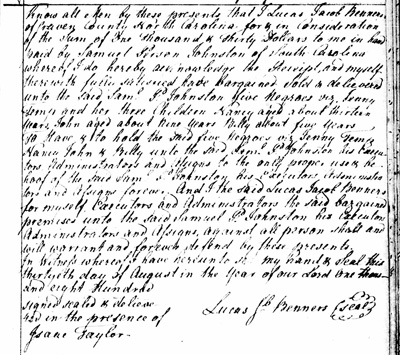 Know all Men by these presents that I Lucas Jacob Benners
of Craven County North Carolina for & in Consideration
of the Sum of One thousand & thirty Dollars to me in hand
paid by Samuel Pearson Johnston of South Carolina
whereof I do hereby acknowledge the Receipt, and myself
therewith fully satisfied have bargained Sold & delivered
unto the said Saml. Ps. Johnston five Negroes viz. Jenny
and her three Children Nancy aged about thirteen
Years John aged about Nine Years Billy about five Years
To Have & to hold the said five Negroes viz Jenny
Nancy John & Billy unto the said Saml. Ps. Johnston his Execu
tors Administrators and Assigns to the only proper use & be
hoof of the said Saml. Ps. Johnston his Executors Administra
tors and Assigns forever. And I the said Lucas Jacob Benners
for myself Executors and Administrators the said bargained
premises unto the said Samuel Ps. Johnston his Executors
Administrators and Assigns, against all person shall and
will warrant and forever defend by these presents
In Witness whereof I have hereunto set my hand & Seal this
thirtyeth day of August in the Year of our Lord One thous
and eight Hundred
signed sealed & delive
red in the presence of
Lucas Jb. Benners (seal)
Isaac Taylor